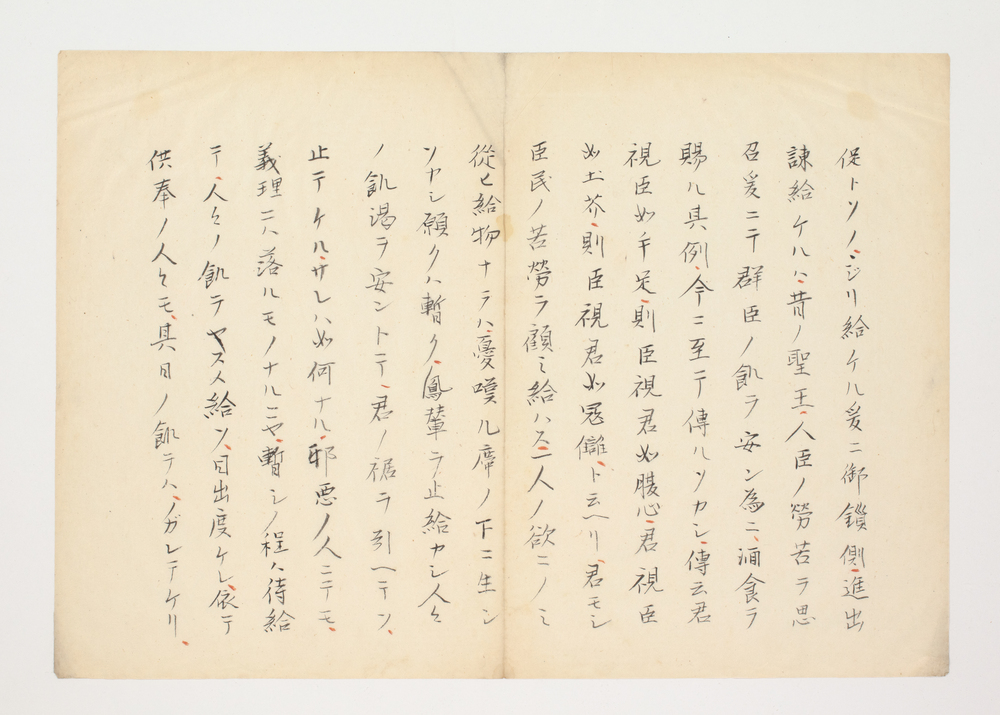 促トソノヽシリ給ケル爰ニ御鎖側、進出
諫給ケルハ、昔ノ聖王、人臣ノ勞苦ヲ思
召爰ニテ群臣ノ飢ヲ安ン為ニ、酒食ヲ
賜ル其例、今ニ至テ傳ルソカシ、傳云君
視臣如手足、則臣視君如腹心、君視臣
如土芥、則臣視君如冦讎、ト云ヘリ、君モシ
臣民ノ苦勞ヲ顧ミ給ハス、一人ノ欲ニノミ
從ヒ給物ナラハ、憂嘆ル席ノ下ニ生ン
ソカシ願クハ暫ク、鳳輦ヲ止給カシ人々
ノ飢渇ヲ安ントテ、君ノ裾ヲ引ヘテソ、
止テケル、サレハ如何ナル、邪悪ノ人ニテモ、
義理ニハ落ルモノナルニヤ、暫シノ程ハ待給
テ、人々ノ飢テヤスメ給ソ、目出度ケレ、依テ
供奉ノ人々モ、其日ノ飢テハ、ノガレテケリ、